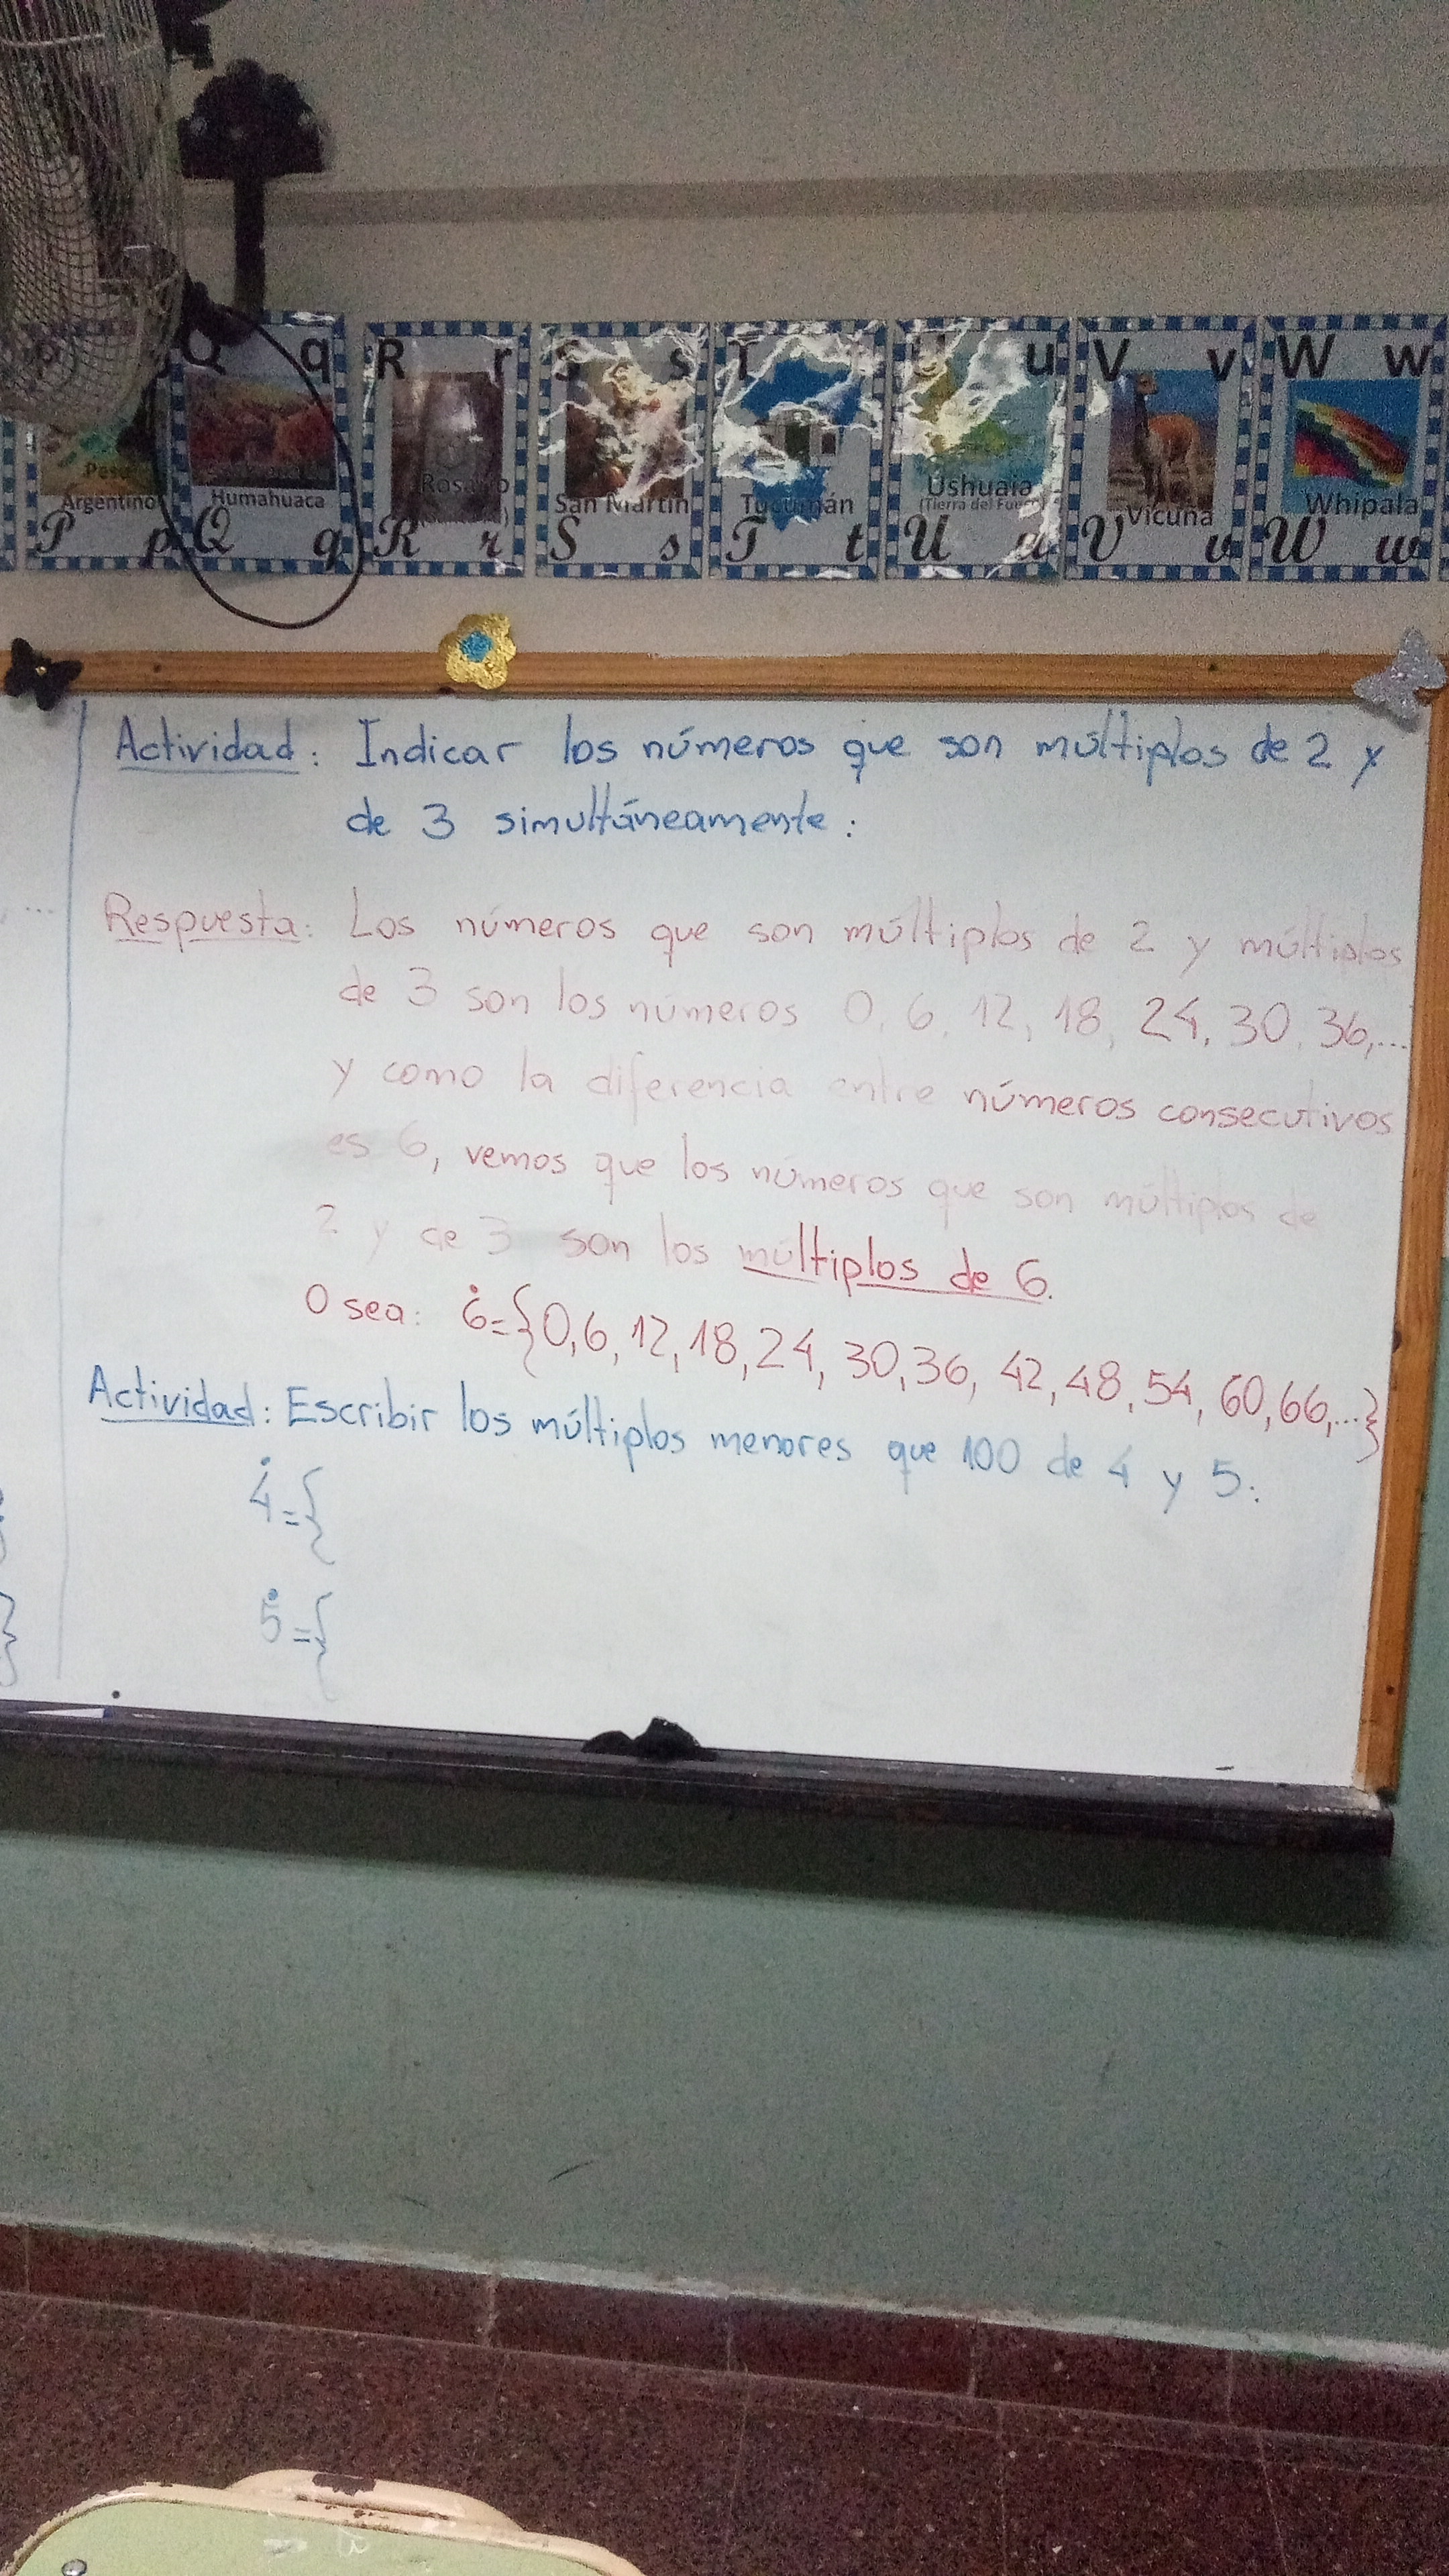 Q q
R r
S s
T
U u
V v
W w
Argentino
Humahuaca
San Martín
Tucumán
Ushuaia
(Tierra del Fuego)
Vicuña
Whipala
P p
Q q
R r
S s
T t
U u
V v
W w
Actividad: Indicar los números que son múltiplos de 2 y
de 3 simultáneamente:
Respuesta: Los números que son múltiplos de 2 y múltiplos
de 3 son los números 0, 6, 12, 18, 24, 30, 36,...
y como la diferencia entre números consecutivos
es 6, vemos que los números que son múltiplos de
2 y de 3 son los múltiplos de 6.
O sea: 6̇={0,6,12,18,24, 30,36, 42,48,54, 60,66,...}
Actividad: Escribir los múltiplos menores que 100 de 4 y 5:
4̇={
5̇={